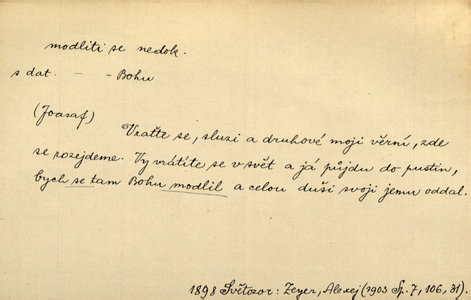 modliti se nedok.
s dat. - - Bohu
(Joasaf)
Vraťte se, sluzi a druhové moji věrní, zde
se rozejdeme. Vy vrátíte se v svět a já půjdu do pustin,
bych se tam Bohu modlil a celou duši svoji jemu oddal.
1898 Světozor: Zeyer, Alexej (1903 Sp. 7, 106, 31).